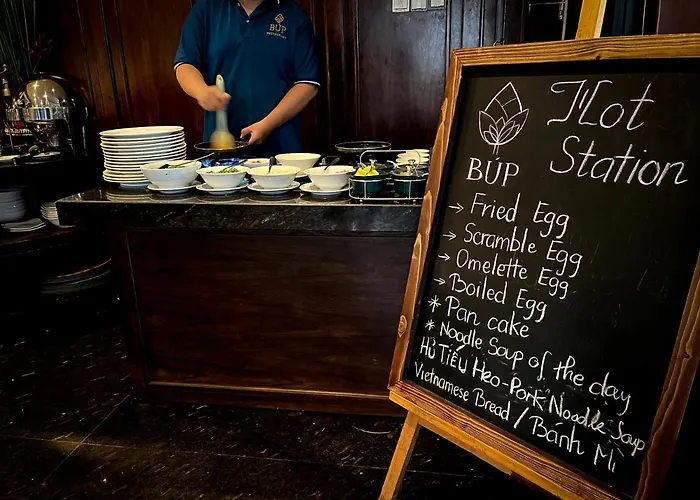 BÚP
BÚP
Hot
Station
→ Fried Egg
→ Scramble Egg
→ Omelette Egg
→ Boiled Egg
* Pan cake
* Noodle Soup of the day
HỦ TIẾU Heo-Pork Noodle Soup
Vietnamese Bread / Bánh Mì